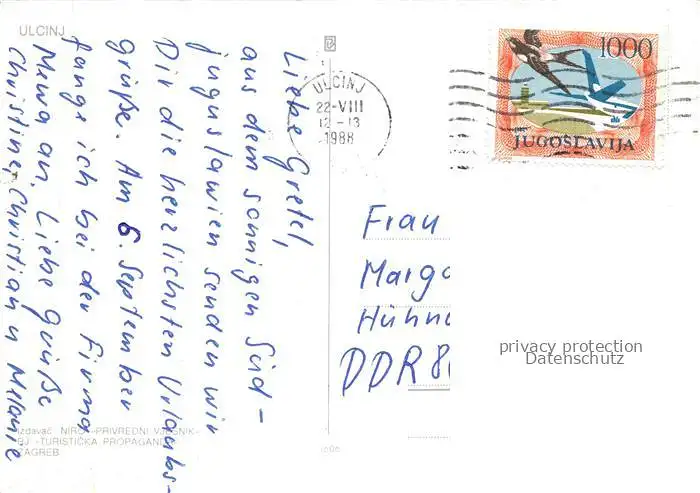 ULCINJ
Liebe Gretel,
aus dem sonnigen Süd-
jugoslawien senden wir
Dir die herzlichsten Urlaubs-
grüße. Am 6. September
fange ich bei der Firma
Mewa an. Liebe Grüße
Christine, Christian u Melanie
ULCINJ
22-VIII
12-13
1988
1000
JUGOSLAVIJA
Frau
Marga
Hühn
DDR 80
privacy protection
Datenschutz
Izdavač NIRO »PRIVREDNI VJESNIK«
»TURISTIČKA PROPAGANDA«
ZAGREB